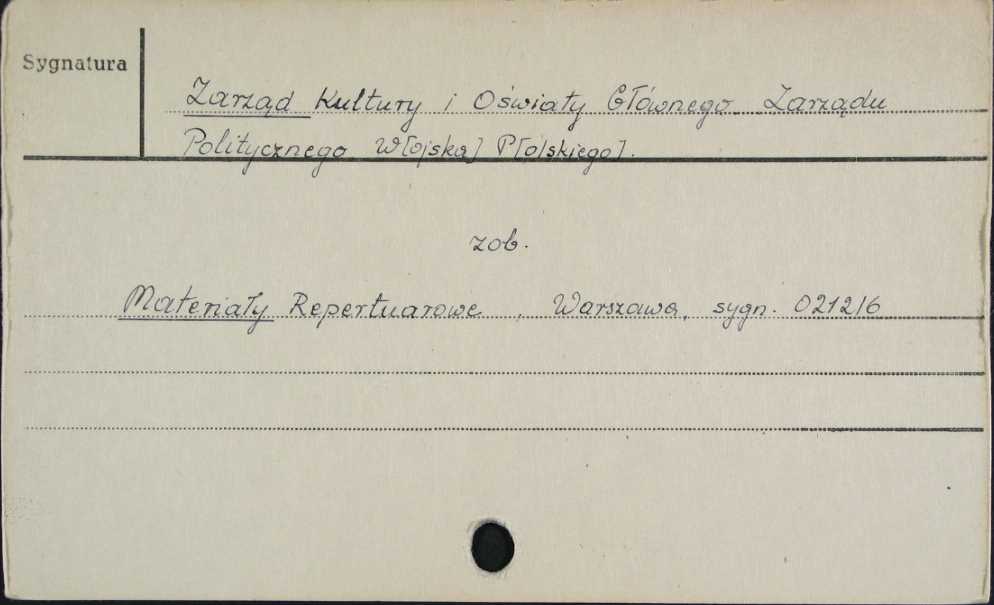 Sygnatura
Zarząd Kultury i Oświaty Głównego Zarządu
Politycznego W[ojska] P[olskiego].
zob.
Materiały Repertuarowe, Warszawa, sygn. 0212/6